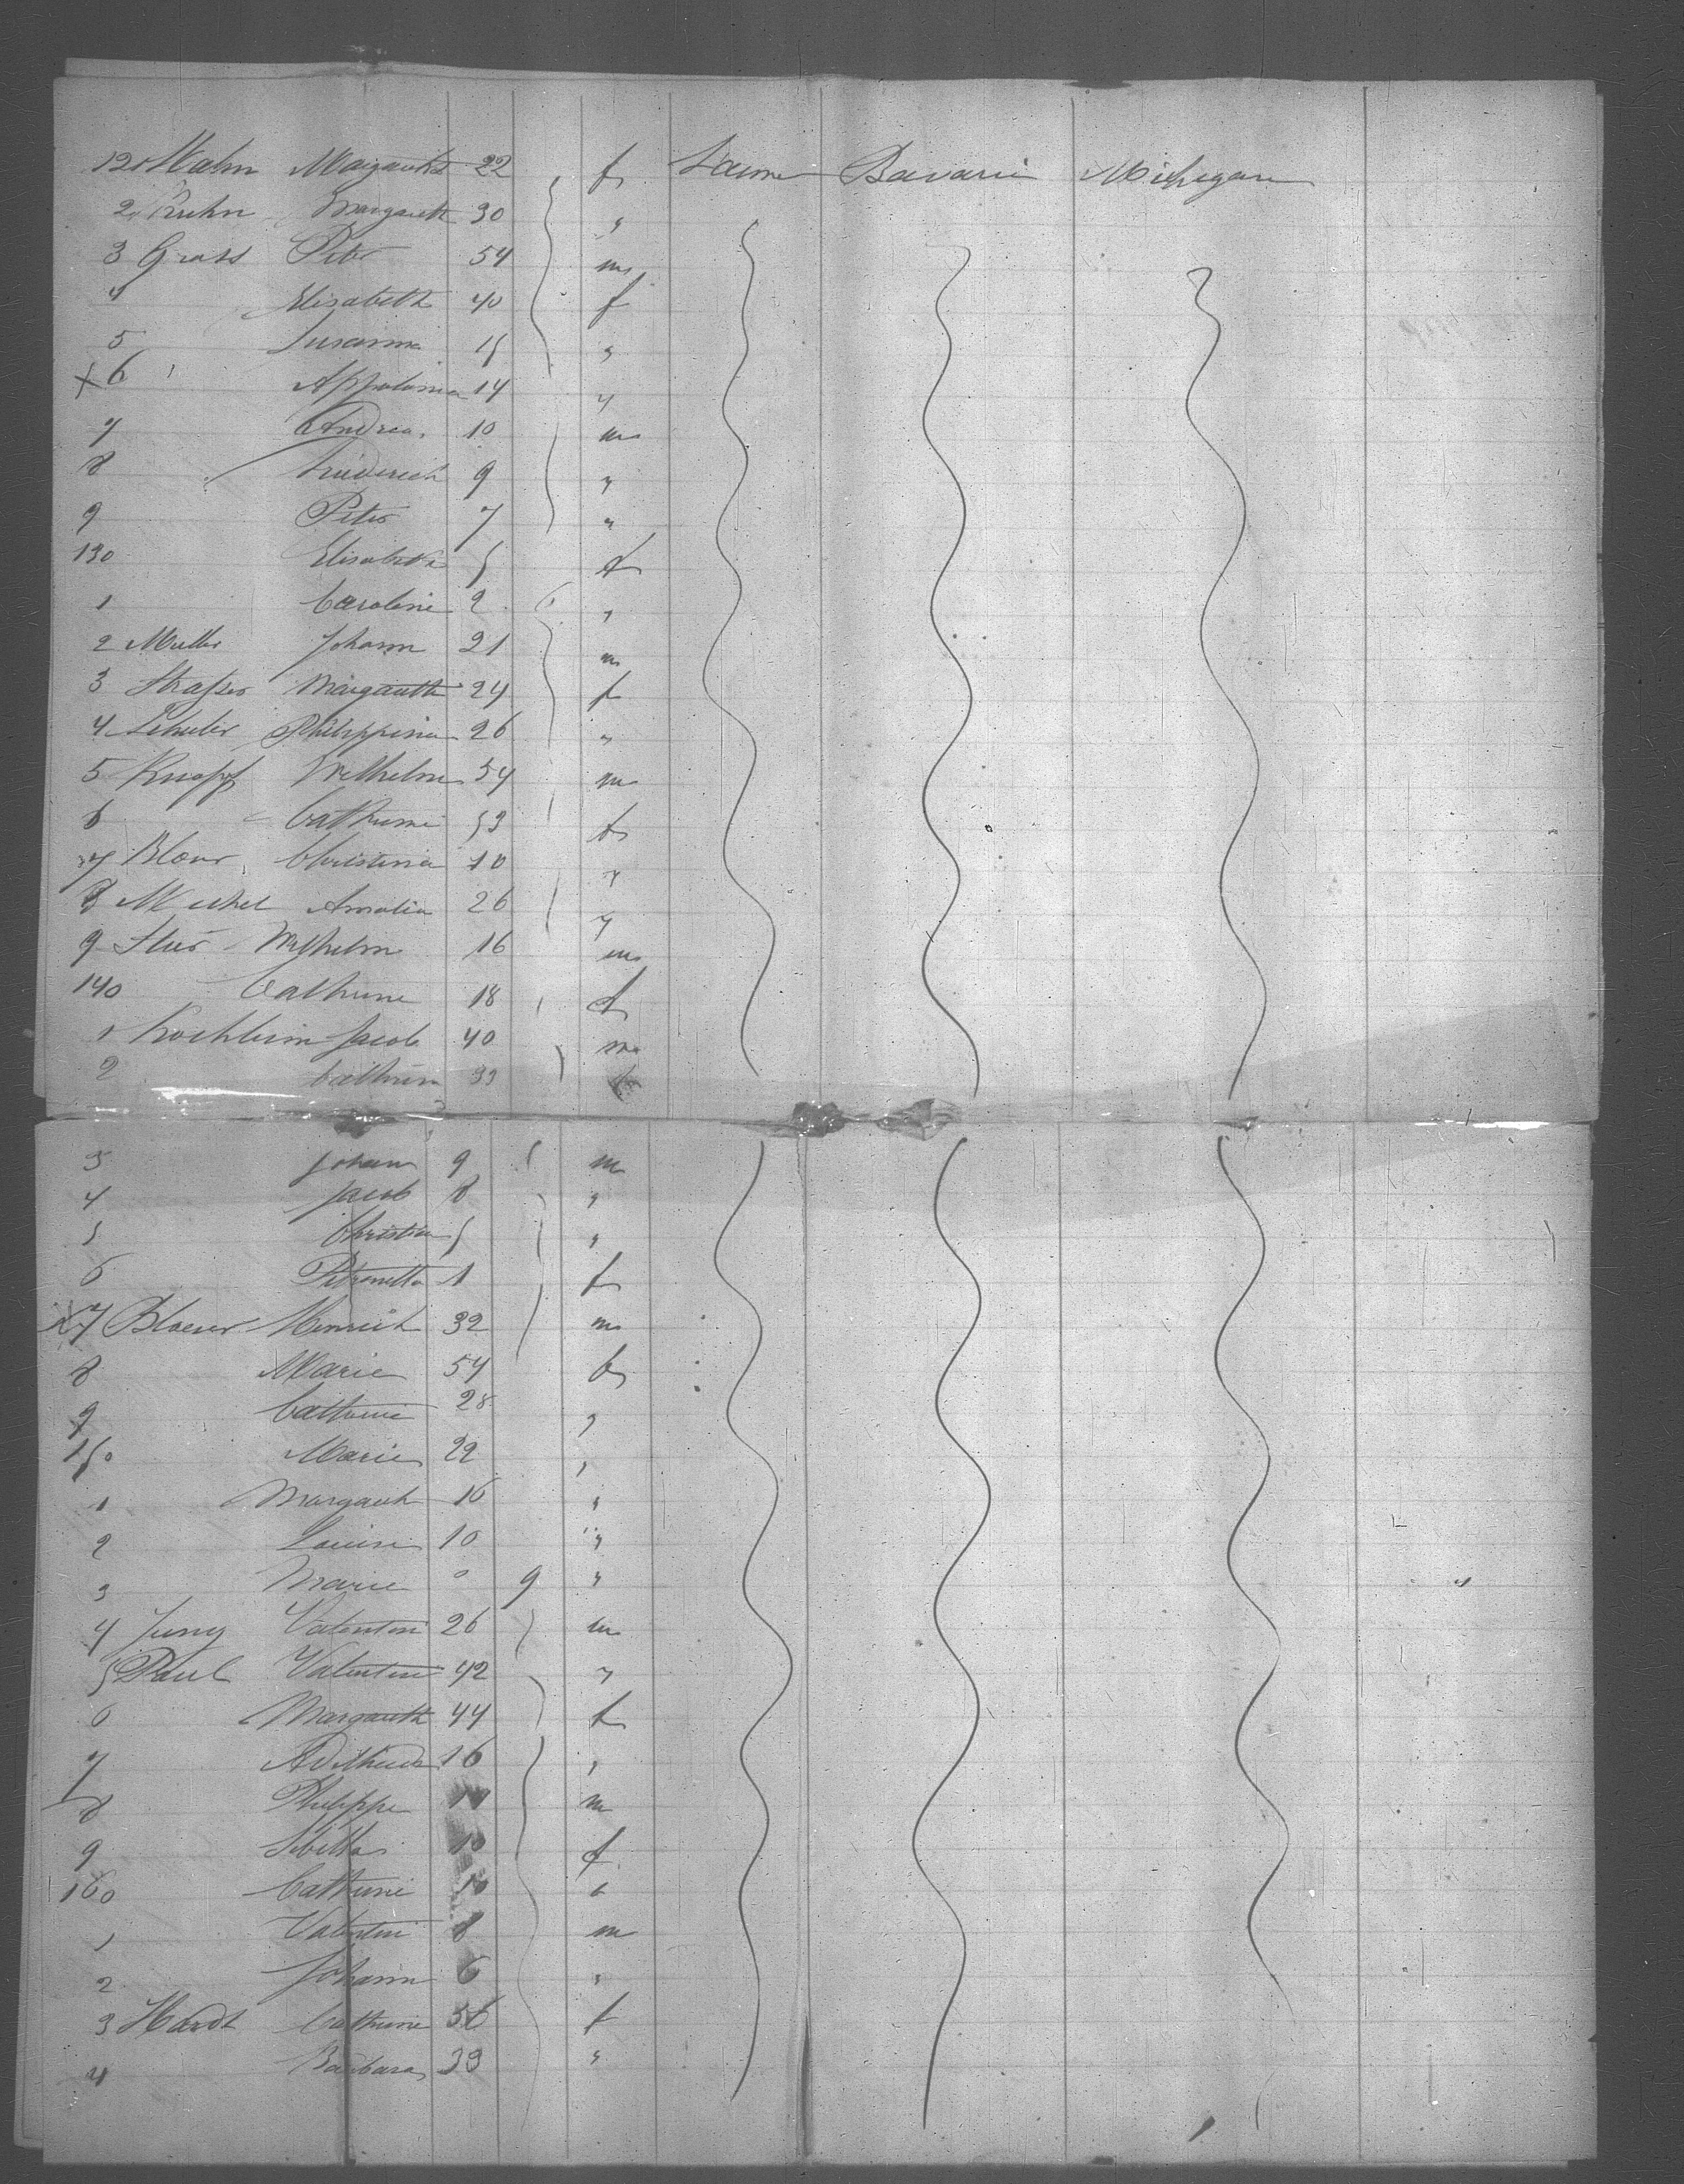 121 Hahn Margareth 22 f Farmer Bavaria Michigan
2 Kuhn Margareth 30 "
3 Grass Peter 54 m
4 Elisabeth 40 f
5 Susanna 15 "
x 6 Appolonia 14 "
7 Andrea 10 m
8 Friederich 9 "
9 Peter 7 "
130 Elisabeth 5 f
1 Caroline 2 "
2 Muller Johann 21 m
3 Strasser Margareth 24 f
4 Schuler Philippina 26 "
5 Knapf Wilhelm 54 m
6 Cathrine 53 f
7 Christina 10 "
8 Amalia 26 "
9 Wilhelm 16 m
140 Cathrine 18 f
1 Jacob 40 m
2 Cathrin 33 f
3 Johann 9 m
4 Jacob 8 "
5 Christian 5 "
6 Petronella 1 f
x 7 Blaeser Heinrich 32 m
8 Marie 54 f
9 Cathrine 28 "
150 Marie 22 "
1 Margareth 16 "
2 Louise 10 "
3 Marie 0 9 "
4 Jung Valentin 26 m
5 Paul Valentin 42 "
6 Margareth 44 f
7 16 "
8 Philippe 14 m
9 Sibilla 10 f
160 Cathrine 10 "
1 Valentin 8 m
2 Johann 6 "
3 Hardt Cathrine 56 f
4 Barbara 33 "